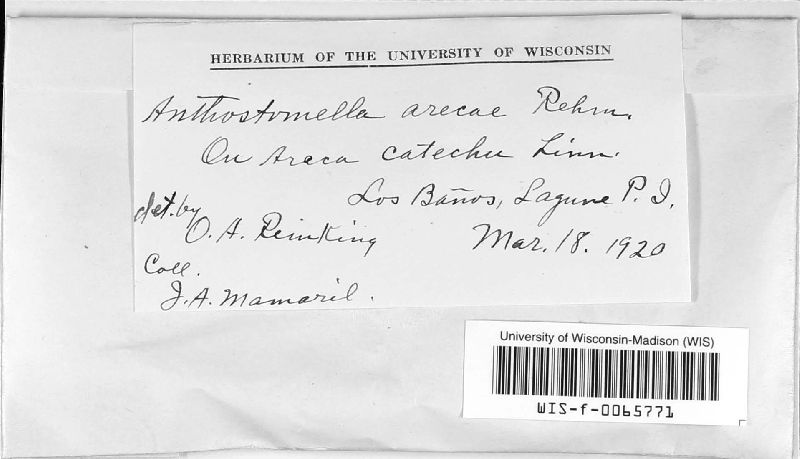 HERBARIUM OF THE UNIVERSITY OF WISCONSIN
Anthostomella arecae Rehm.
On Areca catechu Linn.
Los Baños, Lagune P. I.
det. by
O. A. Reinking
Mar. 18. 1920
Coll.
J. A. Mamaril.
University of Wisconsin-Madison (WIS)
WIS-f-0065771